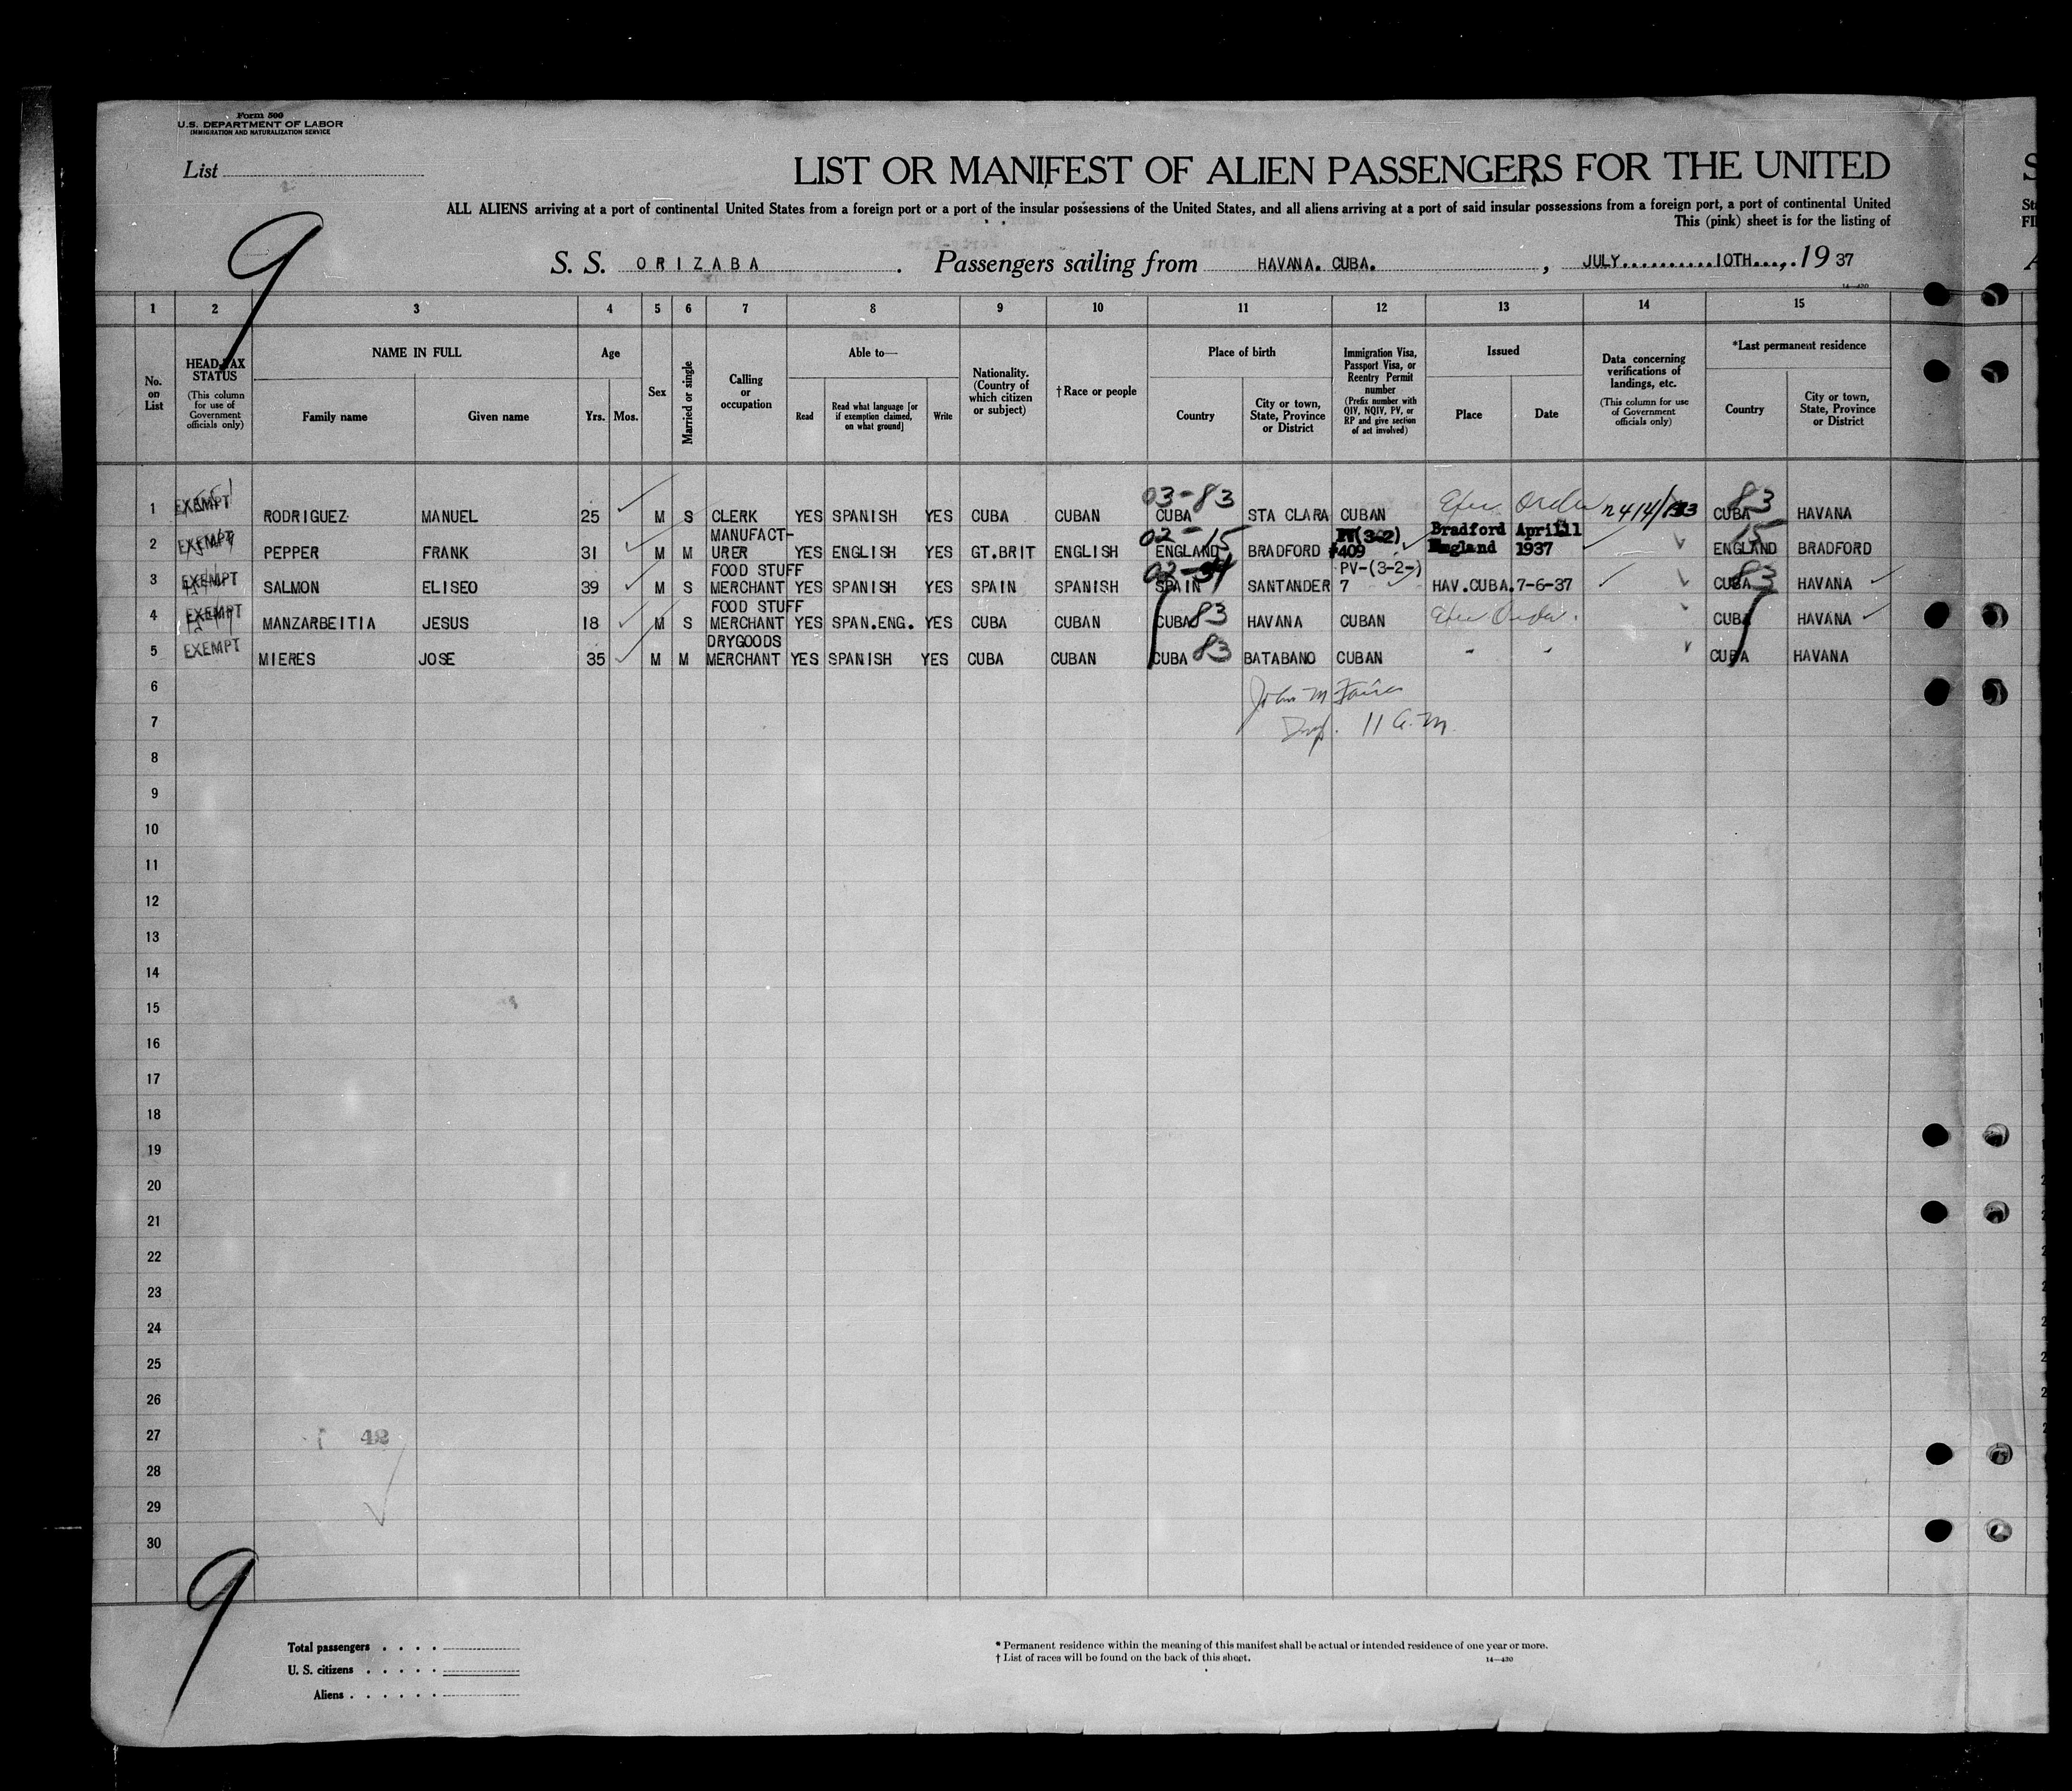 Form 500
U.S. DEPARTMENT OF LABOR
IMMIGRATION AND NATURALIZATION SERVICE
List
LIST OR MANIFEST OF ALIEN PASSENGERS FOR THE UNITED
ALL ALIENS arriving at a port of continental United States from a foreign port or a port of the insular possessions of the United States, and all aliens arriving at a port of said insular possessions from a foreign port, a port of continental United
This (pink) sheet is for the listing of
9
S. S. ORIZABA. Passengers sailing from HAVANA. CUBA., JULY 10TH, 1937
14—430
1 2 3 4 5 6 7 8 9 10 11 12 13 14 15
No. on List
HEAD-TAX STATUS
(This column for use of Government officials only)
NAME IN FULL
Family name
Given name
Age
Yrs.
Mos.
Sex
Married or single
Calling or occupation
Able to—
Read
Read what language [or if exemption claimed, on what ground]
Write
Nationality. (Country of which citizen or subject)
† Race or people
Place of birth
Country
City or town, State, Province or District
Immigration Visa, Passport Visa, or Reentry Permit number
(Prefix number with QIV, NQIV, PV, or RP and give section of act involved)
Issued
Place
Date
Data concerning verifications of landings, etc.
(This column for use of Government officials only)
*Last permanent residence
Country
City or town, State, Province or District
03-83 83
1 EXEMPT RODRIGUEZ MANUEL 25 M S CLERK YES SPANISH YES CUBA CUBAN CUBA STA CLARA CUBAN Order CUBA HAVANA
02-15 15
2 EXEMPT PEPPER FRANK 31 M M MANUFACT-URER YES ENGLISH YES GT.BRIT ENGLISH ENGLAND BRADFORD (3-2) #409 Bradford England April 11 1937 ENGLAND BRADFORD
02- 83
3 EXEMPT SALMON ELISEO 39 M S FOOD STUFF MERCHANT YES SPANISH YES SPAIN SPANISH SPAIN SANTANDER PV-(3-2-) 7 HAV.CUBA. 7-6-37 CUBA HAVANA
4 EXEMPT MANZARBEITIA JESUS 18 M S FOOD STUFF MERCHANT YES SPAN.ENG. YES CUBA CUBAN CUBA 83 HAVANA CUBAN Order. CUBA HAVANA
5 EXEMPT MIERES JOSE 35 M M DRYGOODS MERCHANT YES SPANISH YES CUBA CUBAN CUBA 83 BATABANO CUBAN " " CUBA HAVANA
6 John M
7 11 a.m.
8
9
10
11
12
13
14
15
16
17
18
19
20
21
22
23
24
25
26
27 42
28
29
30
9
Total passengers
U. S. citizens
Aliens
* Permanent residence within the meaning of this manifest shall be actual or intended residence of one year or more.
† List of races will be found on the back of this sheet.
14—430